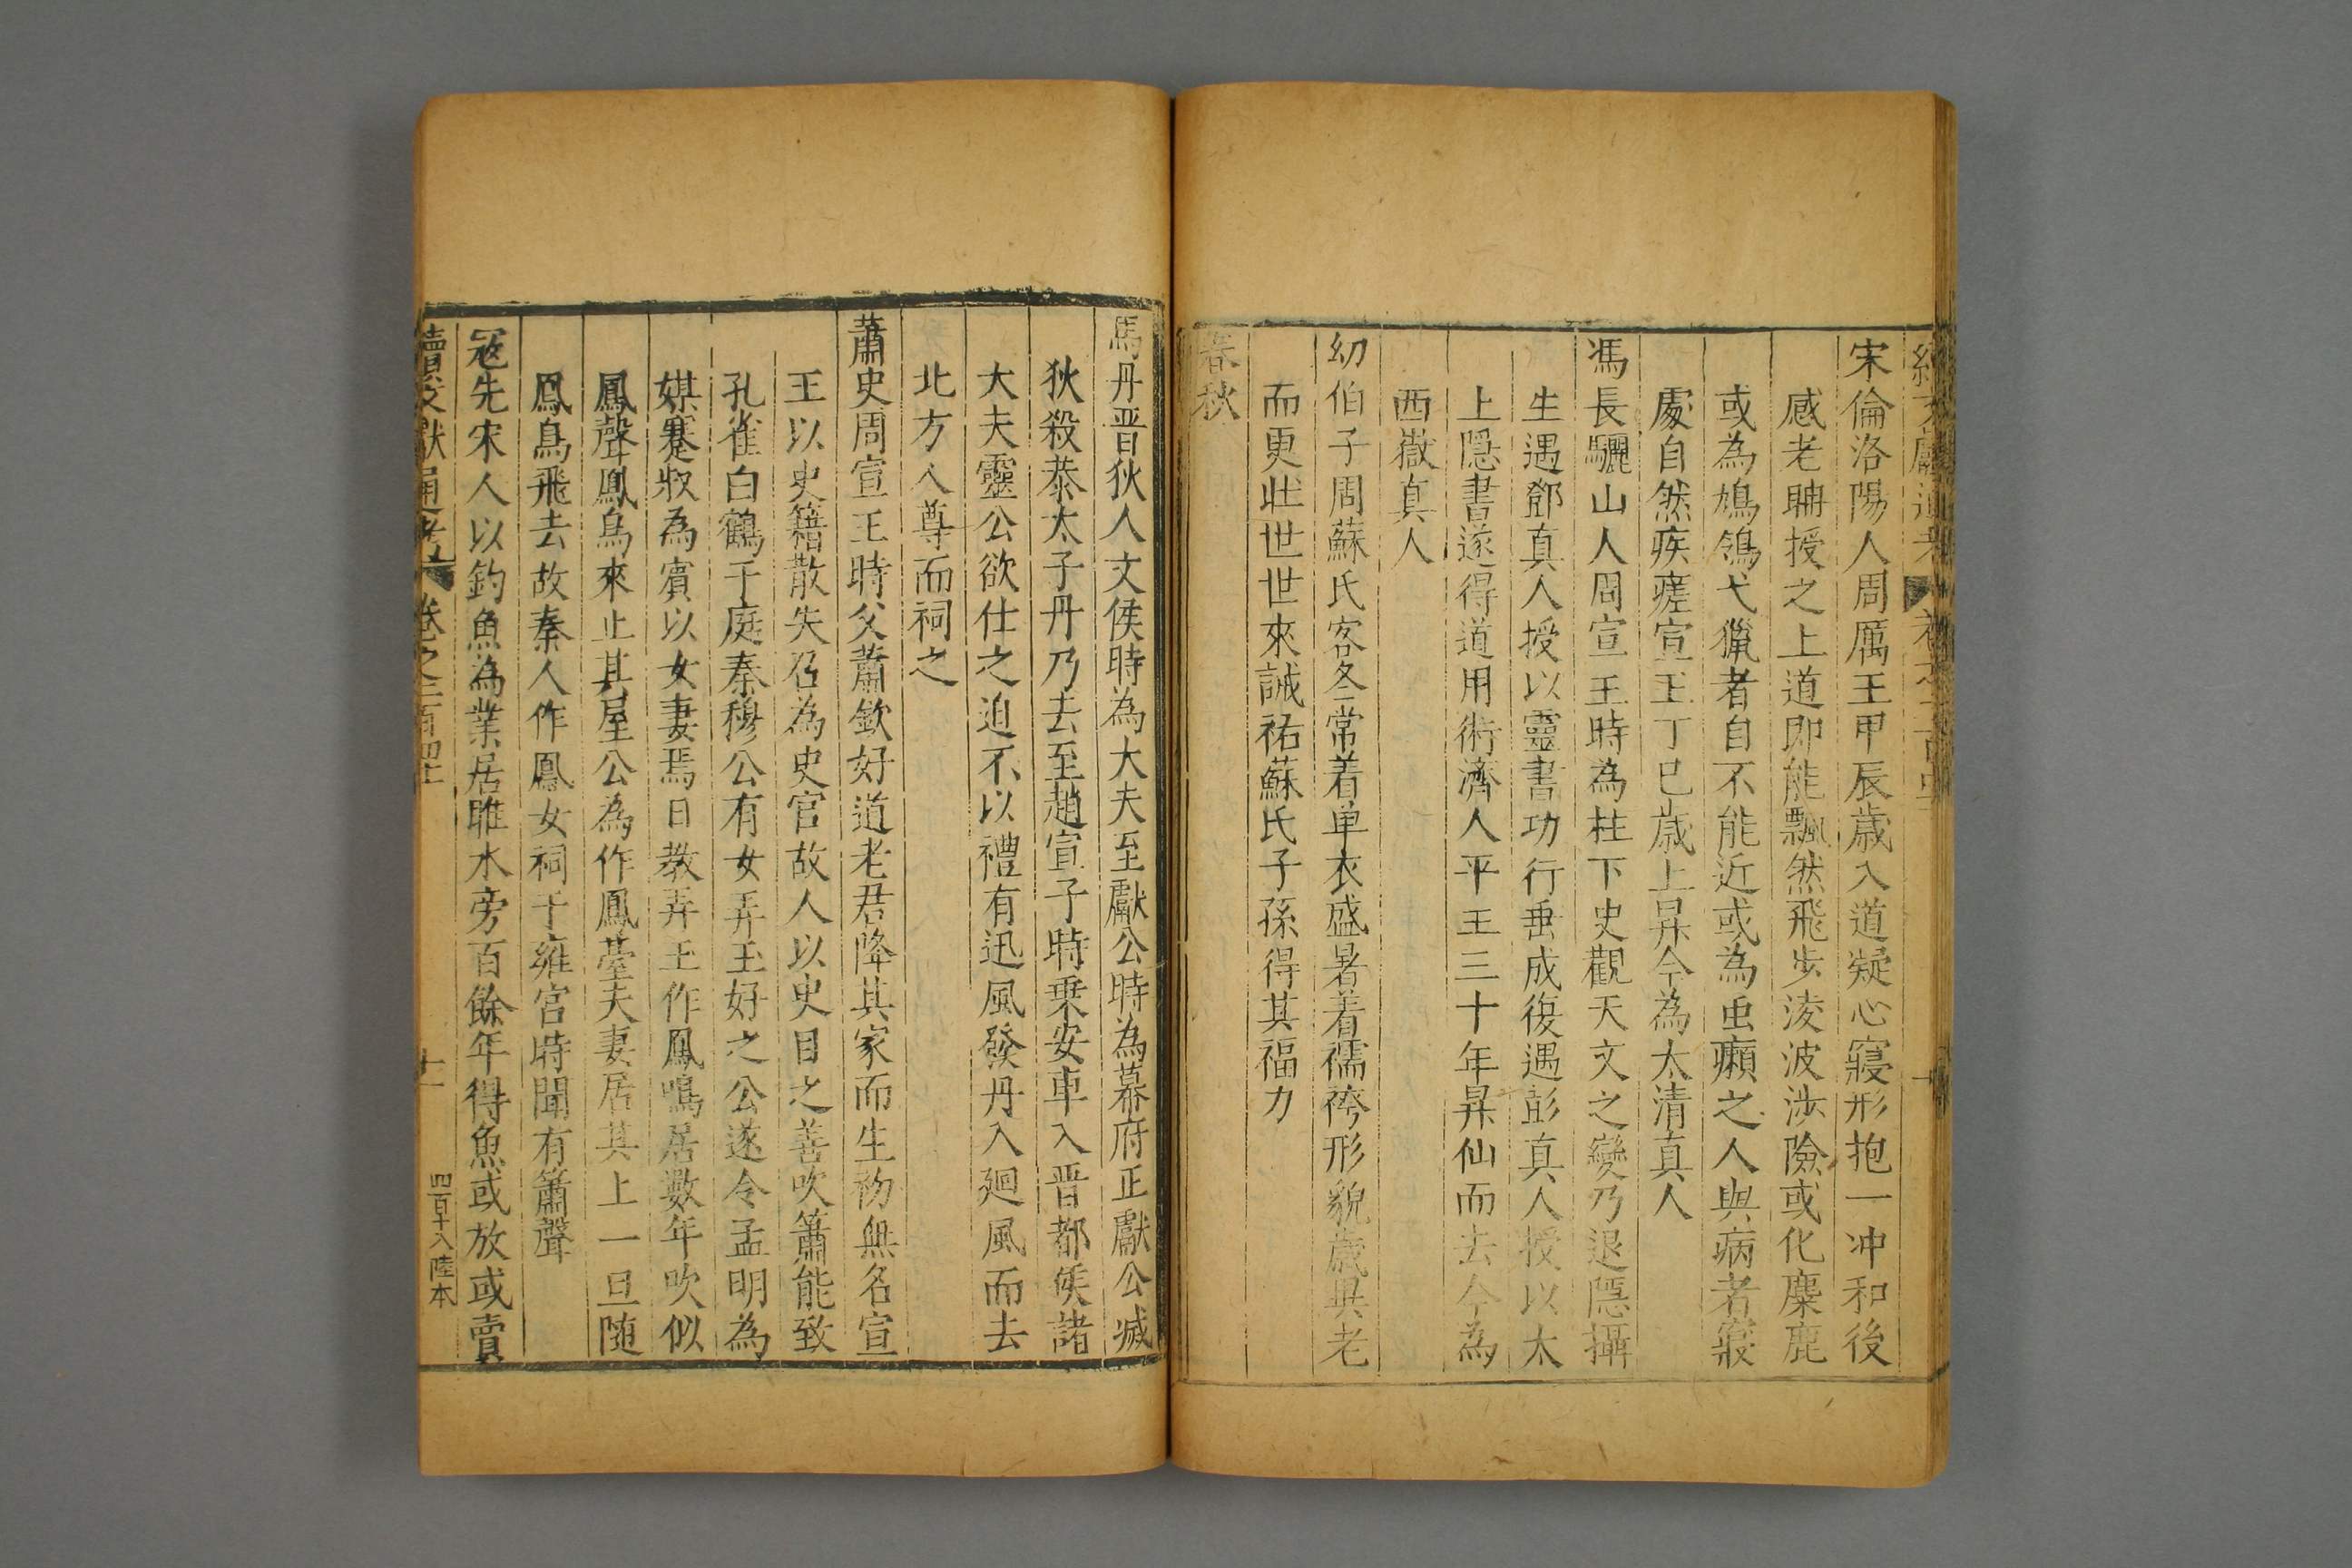 宋倫洛陽人周厲王甲辰歳入道凝心寢形抱一冲和後
感老聃授之上道即能飄然飛步淩波涉險或化麋鹿
或為鳩鴿弋獵者自不能近或為虫癩之人與病者寢
處自然疾瘥宣王丁巳歳上昇今為太清真人
馮長驪山人周宣王時為柱下史觀天文之變乃退隱攝
生遇鄧真人授以靈書功行垂成復遇彭真人授以太
上隱書遂得道用術濟人平王三十年昇仙而去今為
西嶽真人
幻伯子周蘇氏客冬常着单衣盛暑着襦袴形貌歲異老
而更壯世世來誠祐蘇氏子孫得其福力
春秋
馬丹晋狄人文侯時為大夫至獻公時為幕府正獻公滅
狄殺恭太子丹乃去至趙宣子時乗安車入晋都侯諸
大夫靈公欲仕之迫不以禮有迅風發丹入廻風而去
北方人尊而祠之
蕭史周宣王時父蕭欽好道老君降其家而生初無名宣
王以史籍散失召為史官故人以史目之善吹簫能致
孔雀白鶴于庭秦穆公有女弄玉好之公遂令孟明為
媒蹇叔為賓以女妻焉日教弄玉作鳳鳴居數年吹似
鳳聲鳳鳥來止其屋公為作鳳臺夫妻居其上一旦随
鳳鳥飛去故秦人作鳳女祠于雍宮時聞有簫聲
冦先宋人以釣魚為業居睢水旁百餘年得魚或放或賣
續文獻通考 卷之二百四十 十一 四百十八 陸本